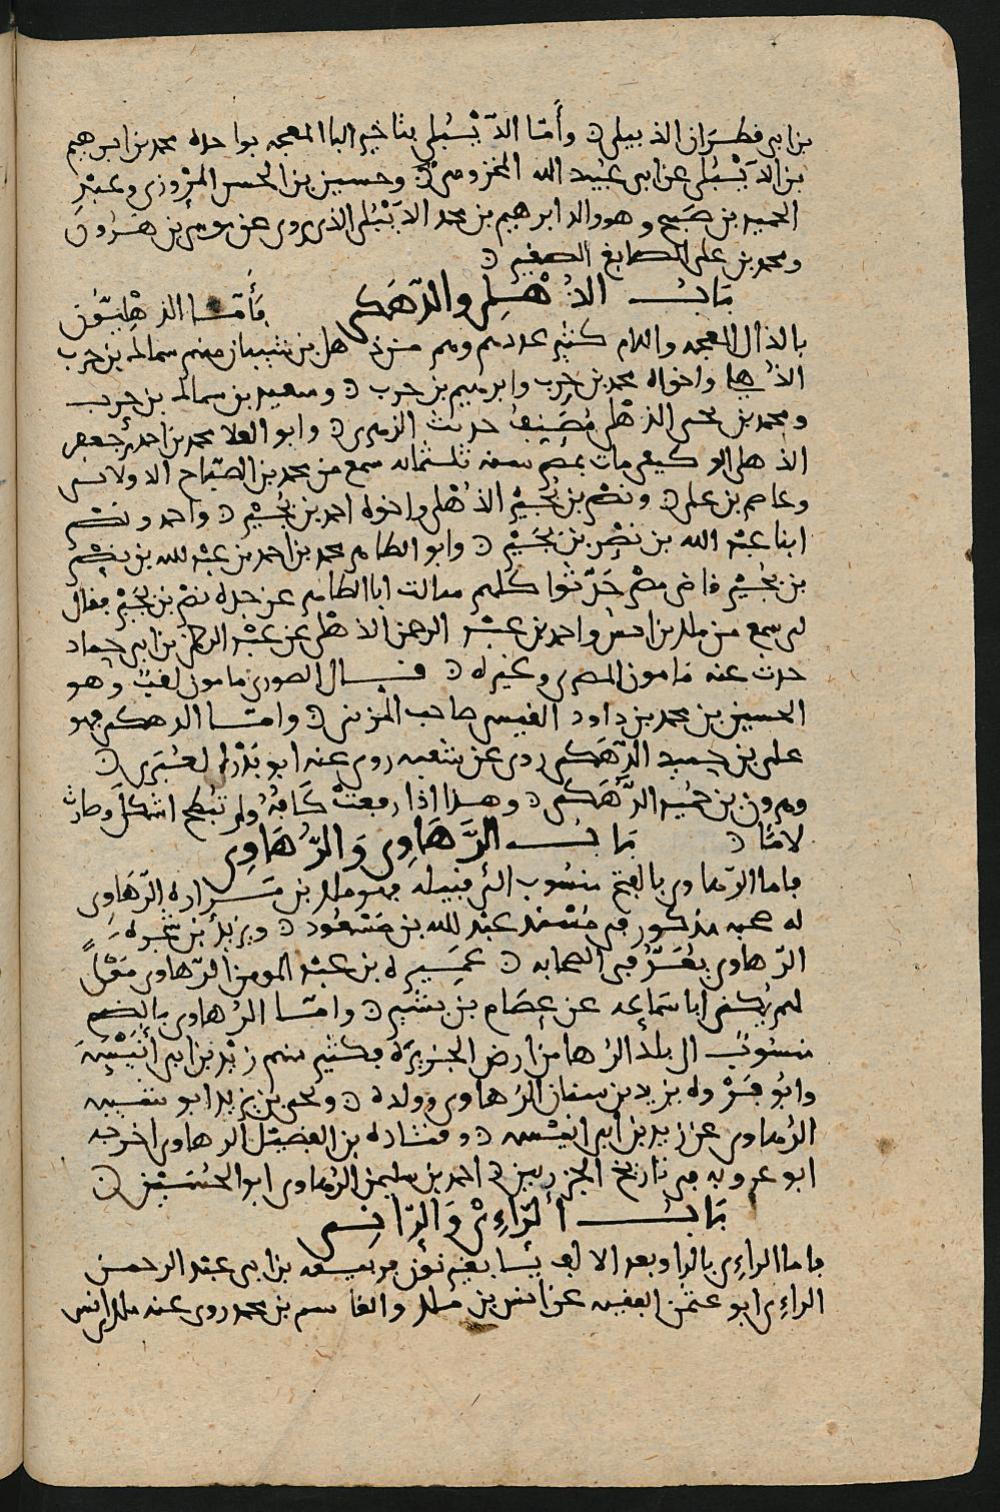 بن ابى فطيران الذبيلى وأمّا الدَّيْبُلى بتاخير البا المعجمه بواحده محمد بن ابرهيم
بن الدَّيْبُلى عن ابى عُبيد الله المخزومى وحسين بن الحسن المَرْوزى وعَبْد
الحميد بن صَبيح وهو والد ابرهيم بن محمد الدَّيْبُلى الذى يروى عن موسى بن هَرُون
ومحمد بن على الصايغ الصغير
بَابُ الذُهْلِى والدَّهَكى فَأَمَّا الذهْليّون
بالذال المعجمه واللام كثير عددهم وهم من ذهل بن شيبان منهم سماك بن حرب
الذُهلى واخواه محمد بن حرب وابرهيم بن حرب وسعيد بن سماك بن حرب
ومحمد بن يحيى الذهْلى مُصَنِّفُ حديث الزهرى وابو العلا محمد بن احمد بن جعفر
الذهلى الوكيعى مات بمصر سنه ثلثمائه سمع من محمد بن الصبّاح الدولابى
وعاصم بن على ونصْر بن بُجَيْر الذُهْلى واخوه احمد بن بُجَيْر واحمد ونصر
ابنا عبْد الله بن نصْر بن بُجَيْر وابو الطاهر محمد بن احمد بن عبْد الله بن نصْر
بن بُجَيْر قاضى مصْر حَدَّثوا كلهم سالت ابا الطاهر عن جده نصْر بن بُجَيْر فقال
لى سمع من ملك بن انس واحمد بن عبْد الرحمن الذهْلى عن عبْد الرحمن بن ابى حماد
حدث عنه مامون المصرى وغيره قال الصورى مامون لقبٌ وهو
الحسين بن محمد بن داود القيسى صاحب المزنى وامّا الدهكى فهو
على بن حميد الدَّهَكى روى عن شعبه روى عنه ابو بَدْر الغُبَرى
وهرون بن حُميد الدَّهَكى وهذا اذا رفعتْ كَافهُ ولم تُبْطح اشكلَ وصارت
لامًا بَابُ الرَّهَاوِى وَالرُّهَاوِى
فاما الرَّهاوى بالفتح منسُوب الى قبيله فهو ملك بن مُرَاره الرَّهَاوِى
له صحبه مذكور فى مُسْنَد عبْد الله بن مَسْعُود ويزيد بن شجَره
الرَّهاوى يُعَدُّ فى الصحابه عَمِيره بن عبْد المومن الرَّهاوى مَوْلىً
لهم يُكنى ابا سَمَاعه عن عِصَام بن بشير وامّا الرُهاوى بالضم
منسُوبٌ الى بلد الرُها من ارض الجزيرَة فكثير منهم زيْد بن ابى أنَيْسَه
وابُو فَرْوه يزيد بن سنان الرُهاوى وولده ويحيى بن يزيد ابو شيبه
الرُهاوى عن زيد بن أبى انَيْسه وقتاده بن الفضيْل الرهاوى اخرجه
ابو عروبه فى تاريخ الجزريين احمد بن سليمن الرُهاوى ابو الحُسَيْن
بَابُ الرَّاءِى وَالرَّانِى
فاما الراءِى بالرا وبعد الالف يا بغير نون فربيعه بن ابى عبْد الرحمن
الراءِى ابو عثمن الفقيه عن انس بن ملك والقاسم بن محمد روى عنه ملك بن انس